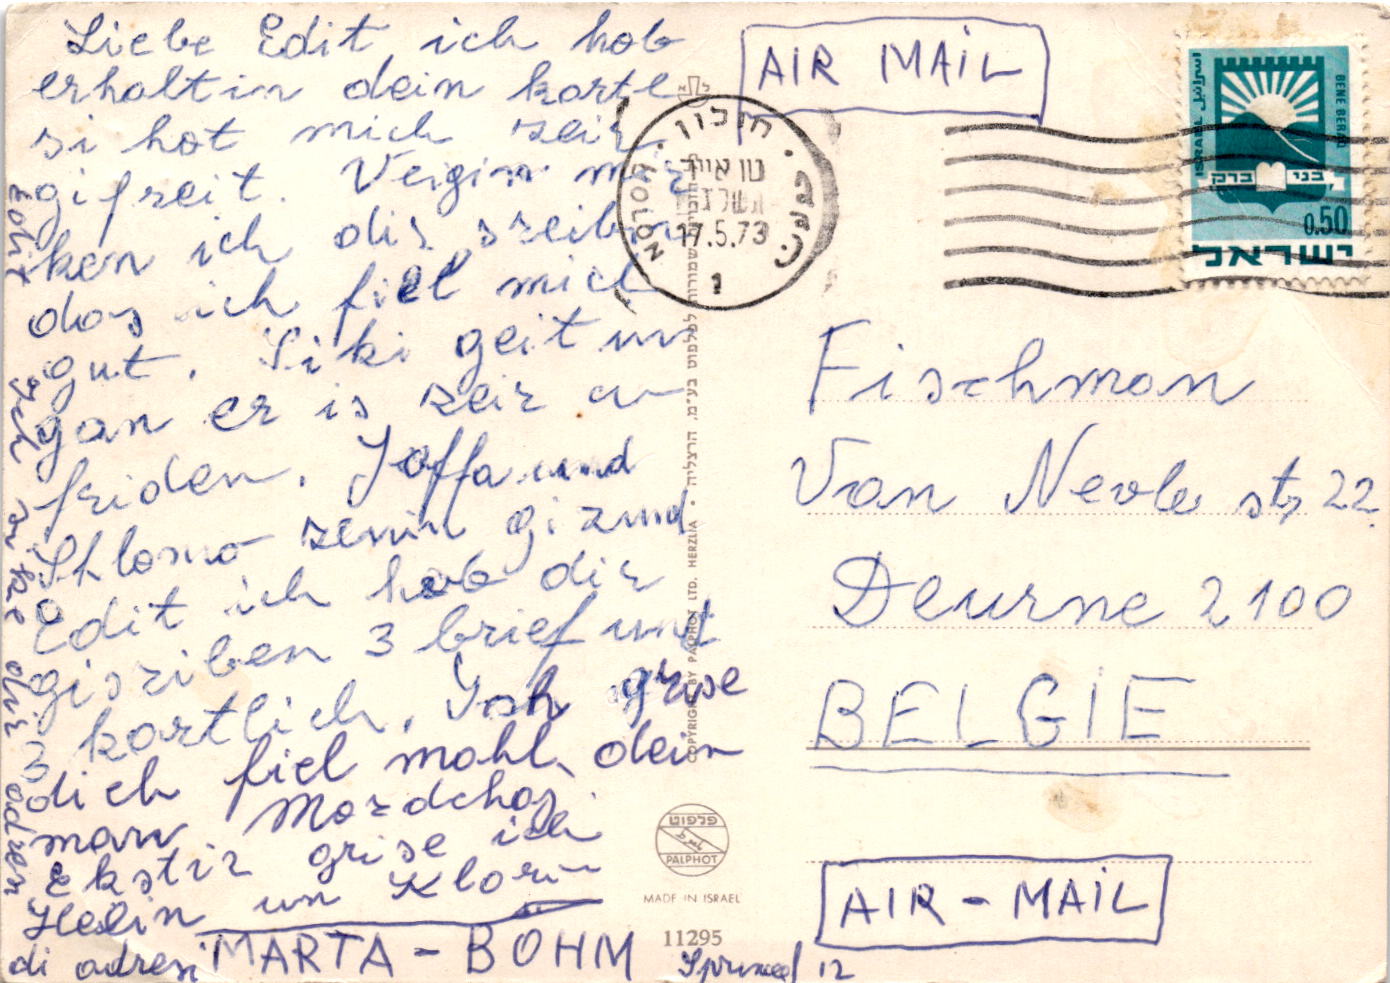 Liebe Edit ich hob
erholtin dein korte
si hot mich zeir
gifreit. Vergin mir
ken ich dir sreibin
dos ich fiel mich
gut. Siki geit un
gan er is zeir cu
friden. Joffa und
Shlomo zenin gizund
Edit ich hob dir
gisriben 3 brief unt
3 kortlich. Ich grise
dich fiel mohl, dein
man Mordchaj
Ekstir grise ich
Heslin un Klorin
di adresi MARTA - BOHM
Edit Ich di adresi
AIR MAIL
חולון
HOLON
טו אייר
תשל"ג
17.5.73
1
اسرائيل
ISRAEL
BENE BERAQ
בני ברק
0.50
ישראל
Fischman
Van Nevle str 22
Deurne 2100
BELGIE
AIR - MAIL
COPYRIGHT BY PALPHOT LTD. HERZLIA • הרצליה
לפלפוט בע"מ,
פלפוט
PALPHOT
MADE IN ISRAEL
11295
12